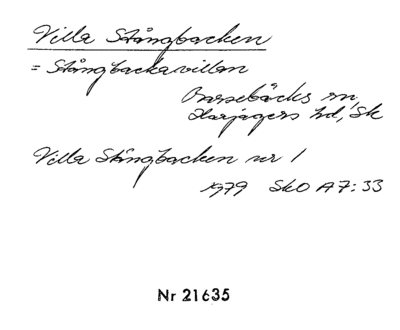 Villa Stångbacken
= Stångbackavillan
Barsebäcks sn,
Harjagers hd, Sk
Villa Stångbacken nr 1
1979 SkO A7:33
Nr 21635